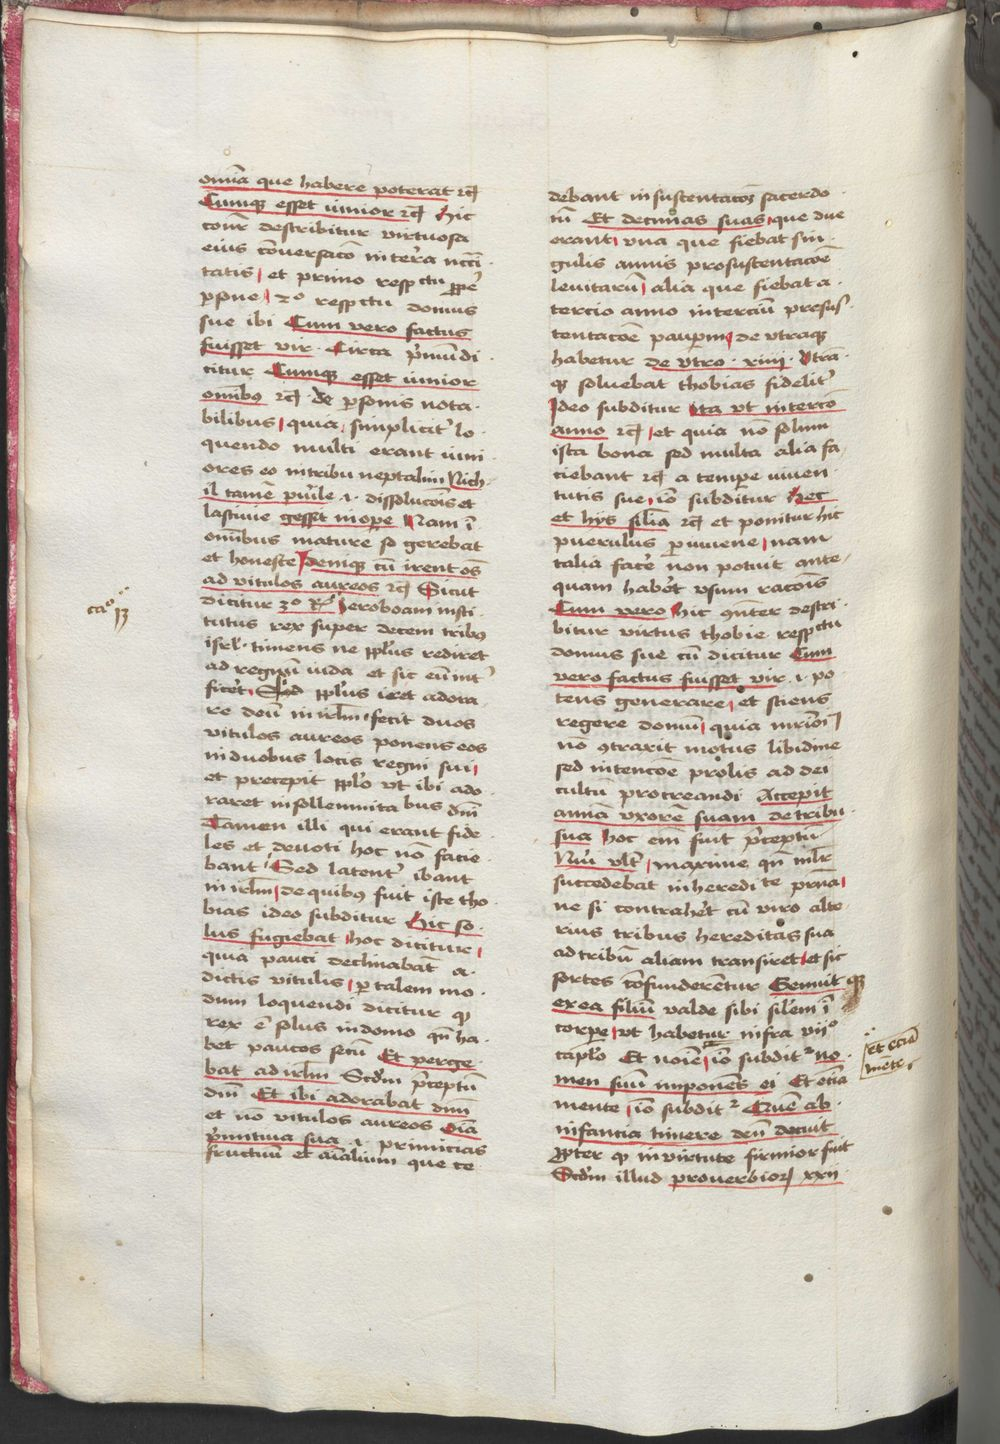 omnia que habere poterat etc
Cumque esset iunior etc Hic
describitur virtuosa
eius
tatis et primo respectu
persone 2o respectu domus
sue ibi Cum vero factus
fuisset vir Circa primum di
citur Cumque esset iunior
omnibus etc de personis nota
bilibus quia simpliciter lo
quendo multi erant iuni
ores eo in tribu neptalim Nich
il tamen puerile .i. dissolucionis et
lascivie gessit in opere Nam in
omnibus mature se gerebat
et honeste Denique cum irent omnes
ad vitulos aureos etc Sicut
dicitur 3o Reg Jeroboam insti
tutus rex super decem tribus
israel timens ne populus rediret
ad regnum iuda et sic eum inter
ficeret Sed populus iret adora
re deum in irlm fecit duos
vitulos aureos ponens eos
in duobus locis regni sui
et precepit populo vt ibi ado
raret in sollemnitatibus domini
Tamen illi qui erant fide
les et deuoti hoc non facie
bant Sed latenter ibant
in irlm de quibus fuit iste tho
bias ideo subditur Hic so
lus fugiebat hoc dicitur
quia pauci declinabant a
dictis vitulis per talem mo
dum loquendi dicitur quod
rex est solus in domo quando ha
bet paucos secum Et perge
bat ad irlm Secundum preceptum
domini Et ibi adorabat dominum
et non vitulos aureos omnia
primitiua sua .i. primicias
fructuum et animalium que ce
cao 13
debant in sustentacionem sacerdo
tum Et decimas suas que due
erant vna que fiebat sin
gulis annis pro sustentacione
levitarum alia que fiebat a
tercio anno in tercium pro sus
tentacione pauperum de vtraque
habetur deutro xiiii Vtram
que soluebat thobias fideliter
Ideo subditur Ita vt in tercio
anno etc et quia non solum
ista bona sed multa alia fa
ciebant etc a tempore iuuen
tutis sue ideo subditur Hec
et hijs similia etc et ponitur hic
puerulus pro iuuene nam
talia facere non potuit ante
quam haberet vsum racionis
Cum vero Hic consequenter descri
bitur virtus thobie respectu
domus sue cum dicitur Cum
vero factus fuisset vir .i. po
tens generare et sciens
regere domum quia matrimonium
non contraxit motus libidine
sed intencione prolis ad dei
cultum procreandi Accepit
annam vxorem suam de tribu
sua hoc enim fuit preceptum
Nui vlt maxime quando mulier
succedebat in hereditate paterna
ne si contraheret cum viro alte
rius tribus hereditas sua
ad tribum aliam transiret et sic
sortes confunderentur Genuitque
ex ea filium valde sibi similem in
corpore vt habetur infra vijo
capitulo Et nomine ideo subditur no
men suum imponens ei Et eciam
mente ideo subditur Quem ab
infancia timere deum docuit
propter quod in virtute firmior fuit
Secundum illud prouerbiorum xxii
et eciam
mente